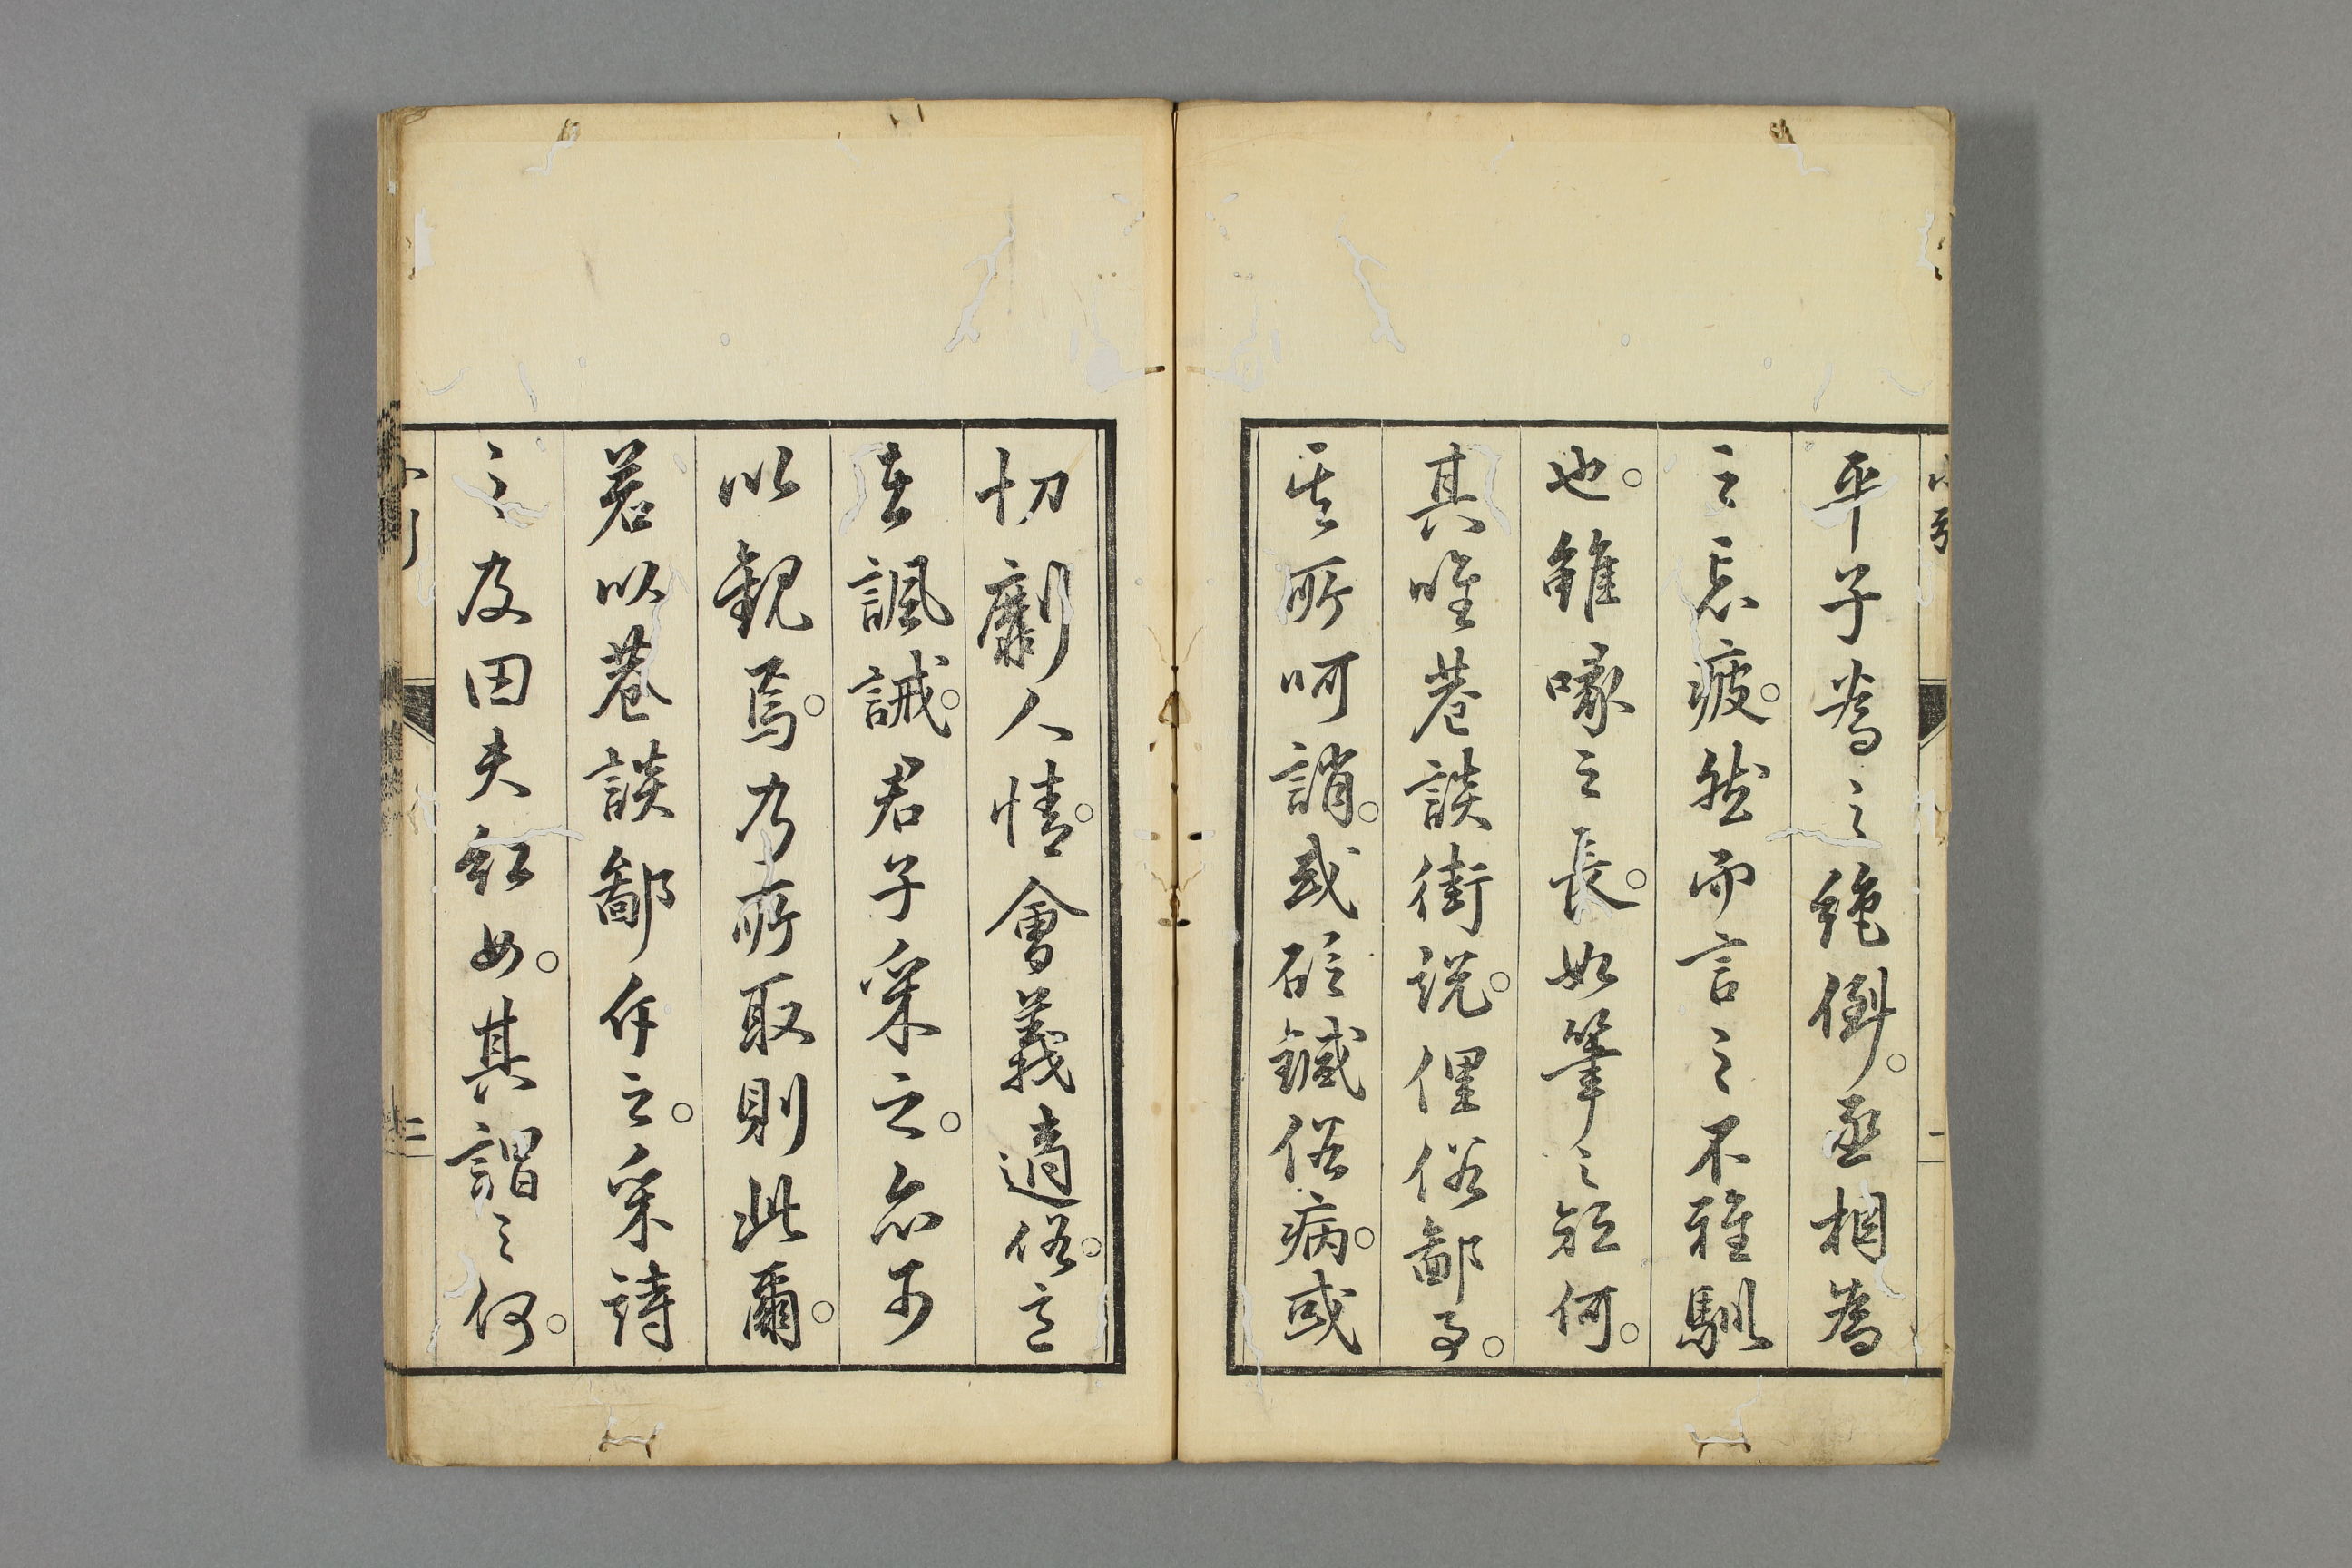 平子為之絶倒。丞相為
之忘疲。然而言之不雅馴
也。雖喙之長。如筆之短何。
其唯巷談街説。俚俗鄙事。
其所呵誚。或砭鍼俗病。或
切劘人情。會義適俗。意
在諷誡。君子采之。亦可
以観焉。乃所取則此爾。
若以巷談鄙斥之。采詩
之及田夫紅女。其謂之何。